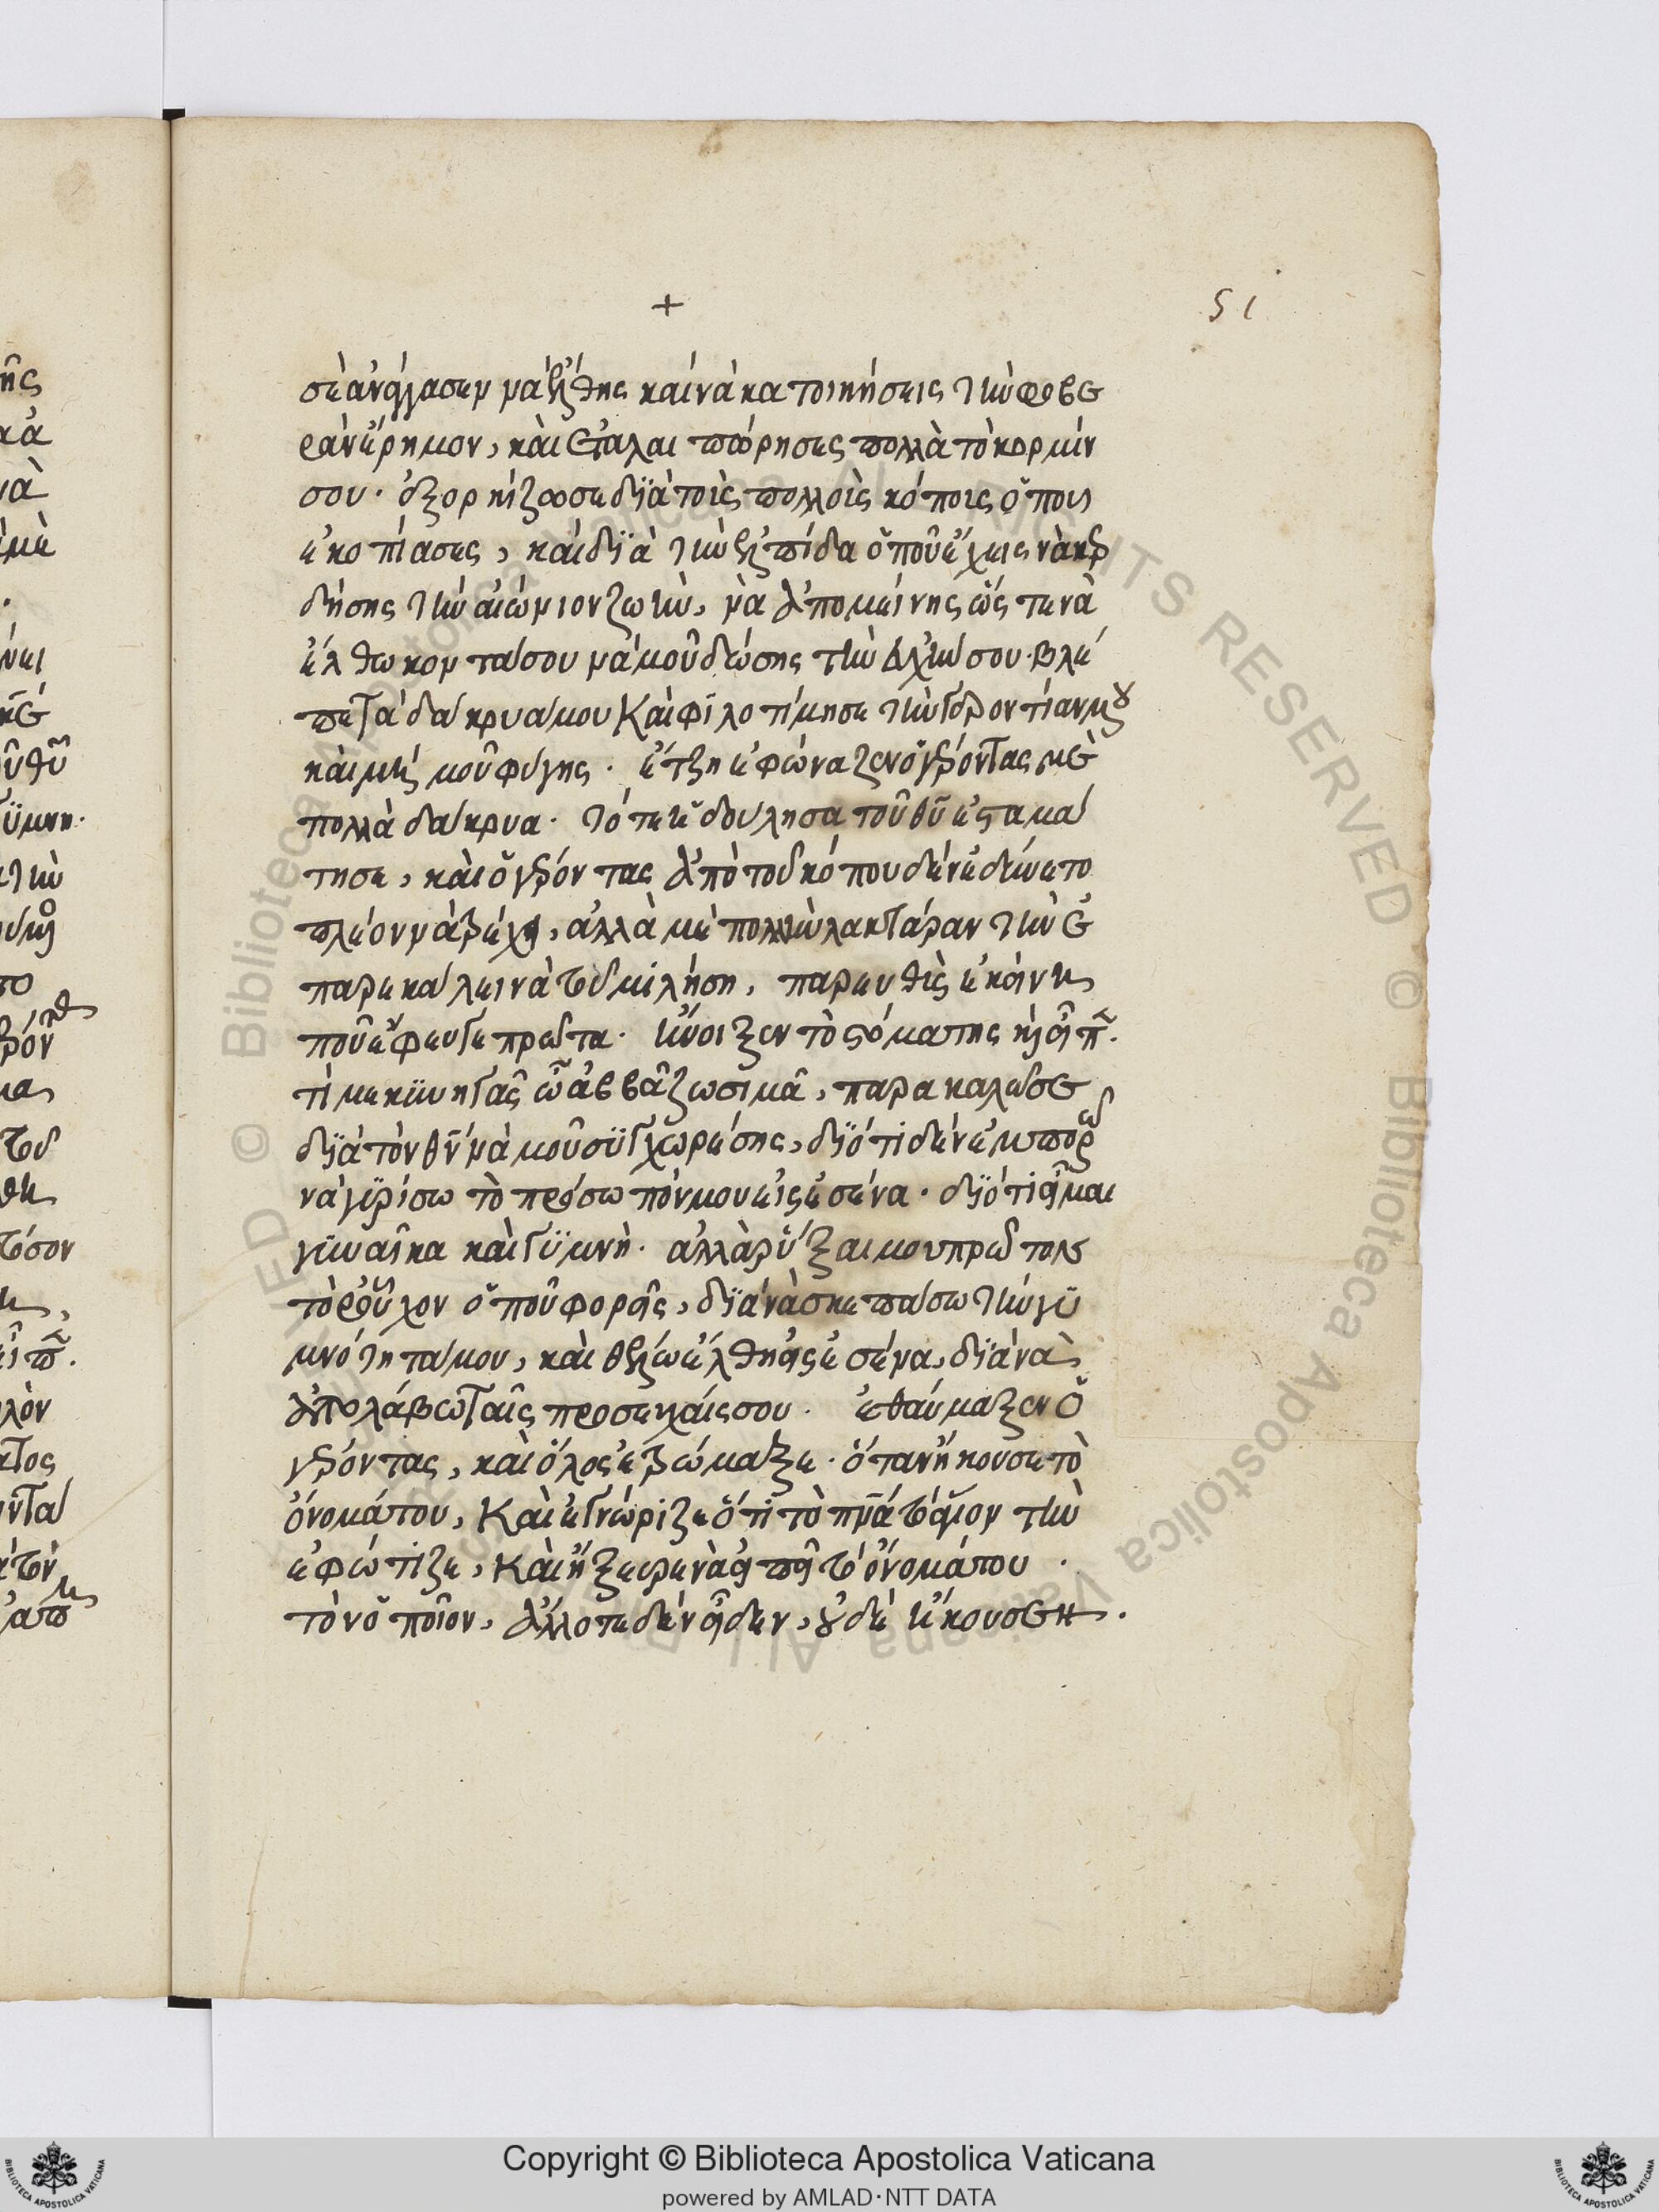 +
51
σὲ ἀνάγιασεν νὰ ἔλθης καὶ νὰ κατοικήσεις τὴν φοβε
ρὰν ἔρημον, καὶ ἐπάλαι πώρησες πολλὰ τὸ κορμίν
σου· ὀξορκίζω σε διὰ τοὶς πολλοὶς κόποις ὅπου
ἐκοπίασες, καὶ διὰ τὴν ἐλπίδα ὁποῦ ἔχεις νὰ κερ
δήσης τὴν αἰώνιον ζωὴν, νὰ ἀπομείνης ὥς τε νὰ
ἔλθω κοντά σου νὰ μοῦ δώσης τὴν εὐχήν σου· βλέ
πε τὰ δάκρυά μου καὶ φιλοτίμησε τὴν γεροντίαν μου
καὶ μή μοῦ φύγης· ἔτζη ἐφώναζεν ὁ γέροντας μὲ
πολλὰ δάκρυα· τότε ἡ δούλησα τοῦ θῦ ἐσταμά
τησε, καὶ ὁ γέροντας ἀπὸ τοῦ κόπου δὲν ἐδύνετο
πλέον νὰ τρέχη, ἀλλὰ μὲ πολλὴν λακτάραν τὴν ἐ
παρεκάλει νὰ τοῦ μιλήση, παρευθὺς ἐκείνη
ποῦ ἔφευγε πρῶτα· ἤνοιξεν τὸ στόμα της κ(αὶ) εἶπ(ε).
τί με κυνηγᾶς ὦ ἀββᾶ ζωσιμᾶ, παρακαλῶ σε
διὰ τὸν θν̄ νὰ μοῦ συγχωρέσης, διότι δὲν ἐμπορῶ
νὰ γυρίσω τὸ πρόσωπόν μου εἰς ἐσένα· διότι εἶμαι
γυναῖκα καὶ γυμνή· ἀλλὰ ῥύξαι μου πρῶτον
τὸ ροῦχον ὁποῦ φορεῖς, διὰ νὰ σκεπάσω τὴν γυ
μνότητά μου, καὶ θέλω ἔλθη εἰς ἐσένα, διὰ νὰ
ἀπολάβω ταῖς προσευχαίς σου· ἐθαύμαξεν ὁ
γέροντας, καὶ ὅλος ἐτρώμαξε· ὅταν ἤκουσε τὸ
ὄνομά του, καὶ ἐγνώριζε ὅτι τὸ πνᾶ τὸ ἅγιον τὴν
ἐφώτιζε, καὶ ἤξευρε νὰ εἰπῇ τὸ ὄνομά του ·
τὸν ὁποῖον, ἄλλοτε δὲν εἶδεν, οὐδὲ ἤκουσέ τη.